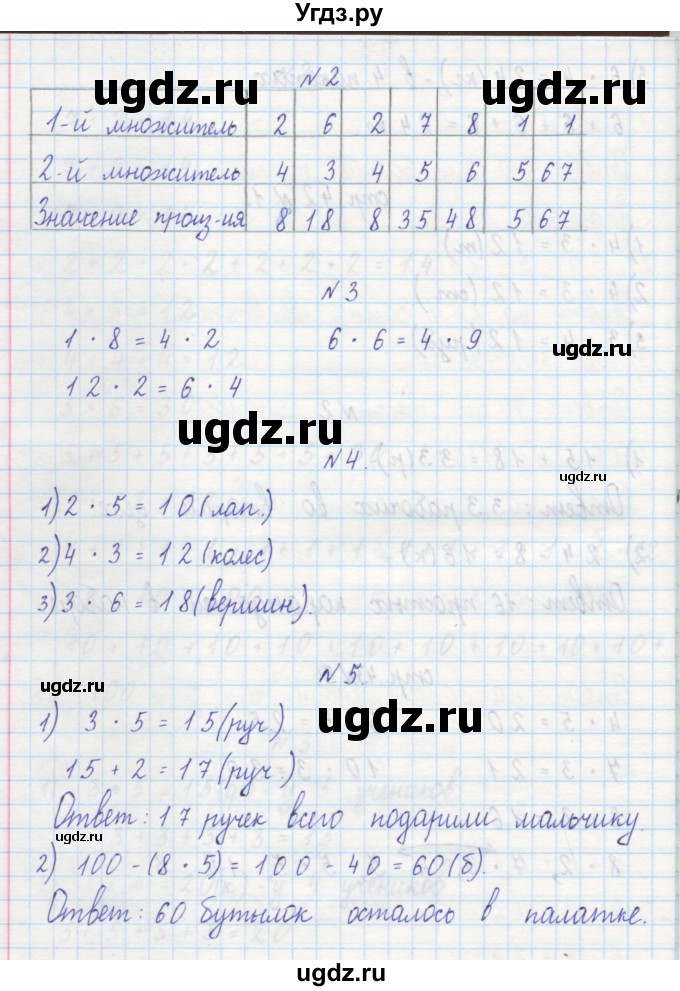 Угдз.ру
ugdz.ru ugdz.ru
№2
1-й множитель 2 6 2 7 8 1 1
2-й множитель 4 3 4 5 6 5 67
Значение произ-ия 8 18 8 35 48 5 67
ugdz.ru ugdz.ru
№3
1 · 8 = 4 · 2 6 · 6 = 4 · 9
ugdz.ru
12 · 2 = 6 · 4
ugdz.ru ugdz.ru
№4.
1) 2 · 5 = 10 (лап.)
ugdz.ru
2) 4 · 3 = 12 (колес)
3) 3 · 6 = 18 (вершин).
ugdz.ru ugdz.ru
№5
ugdz.ru
1) 3 · 5 = 15 (руч.)
ugdz.ru ugdz.ru
15 + 2 = 17 (руч.)
Ответ: 17 ручек всего подарили мальчику.
ugdz.ru
2) 100 - (8 · 5) = 100 - 40 = 60 (б).
ugdz.ru ugdz.ru
Ответ: 60 бутылок осталось в палатке.
ugdz.ru